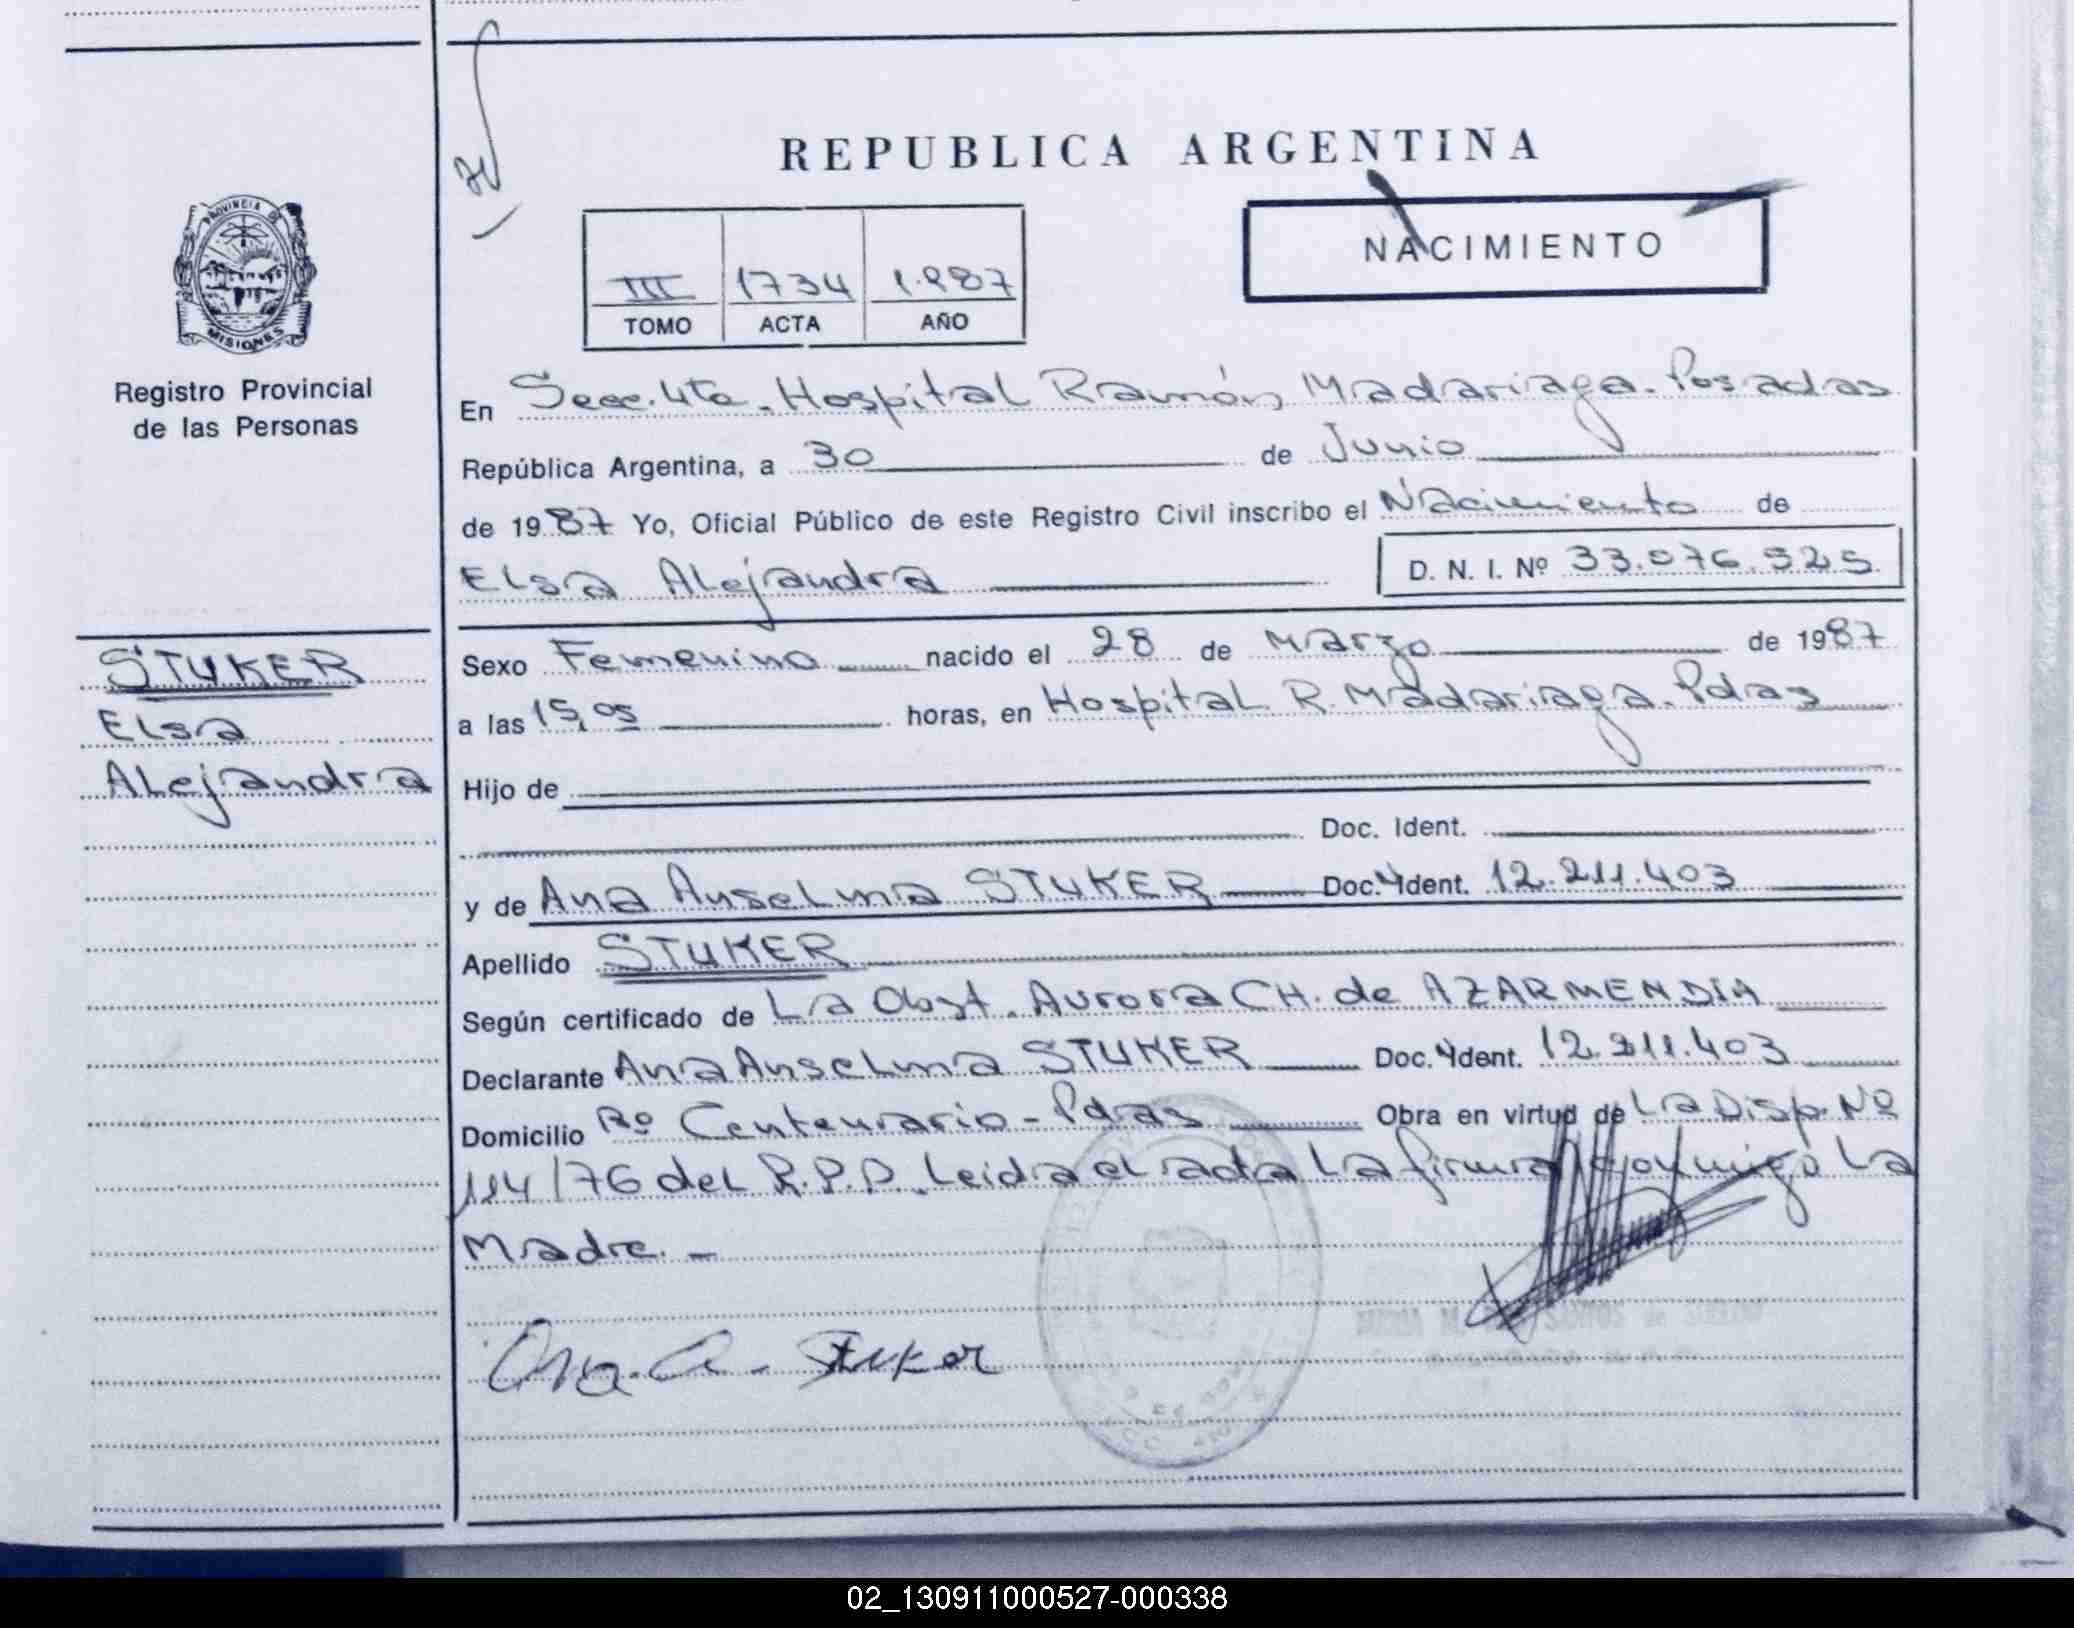 REPUBLICA ARGENTINA
NACIMIENTO
III 1734 1.987
TOMO ACTA AÑO
PROVINCIA DE
MISIONES
Registro Provincial
de las Personas
En Secc. 4ta. Hospital Ramón Madariaga. Posadas
República Argentina, a 30 de Junio
de 1987 Yo, Oficial Público de este Registro Civil inscribo el Nacimiento de
Elsa Alejandra D. N. I. Nº 33.076.925
STUKER
Elsa
Alejandra
Sexo Femenino nacido el 28 de Marzo de 1987
a las 15,05 horas, en Hospital R. Madariaga. Pdas
Hijo de
Doc. Ident.
y de Ana Anselma STUKER Doc. Ident. 12.211.403
Apellido STUKER
Según certificado de La Obst. Aurora CH. de AZARMENDIA
Declarante Ana Anselma STUKER Doc. Ident. 12.211.403
Domicilio Bº Centenario - Pdas Obra en virtud de La Disp. Nº
114/76 del R.P.P. Leida el acta La firma conmigo La
Madre. -
Ana. A. Stuker
02_130911000527-000338